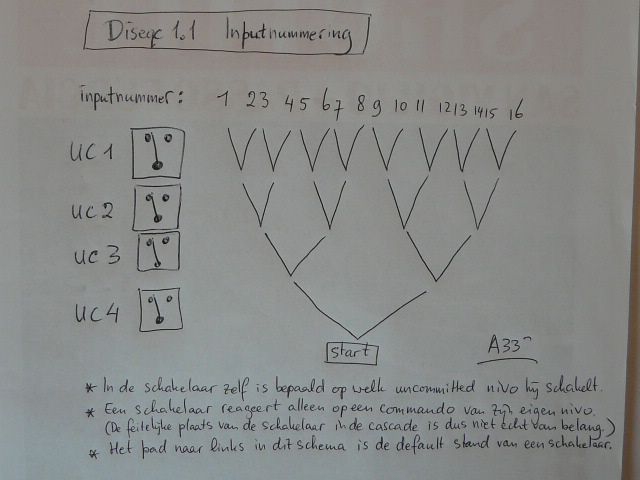 Diseqc 1.1 Inputnummering
inputnummer: 1 2 3 4 5 6 7 8 9 10 11 12 13 14 15 16
UC1
UC2
UC3
UC4
start
A33~
* In de schakelaar zelf is bepaald op welk uncommitted nivo hij schakelt.
* Een schakelaar reageert alleen op een commando van zijn eigen nivo.
(De feitelijke plaats van de schakelaar in de cascade is dus niet echt van belang.)
* Het pad naar links in dit schema is de default stand van een schakelaar.